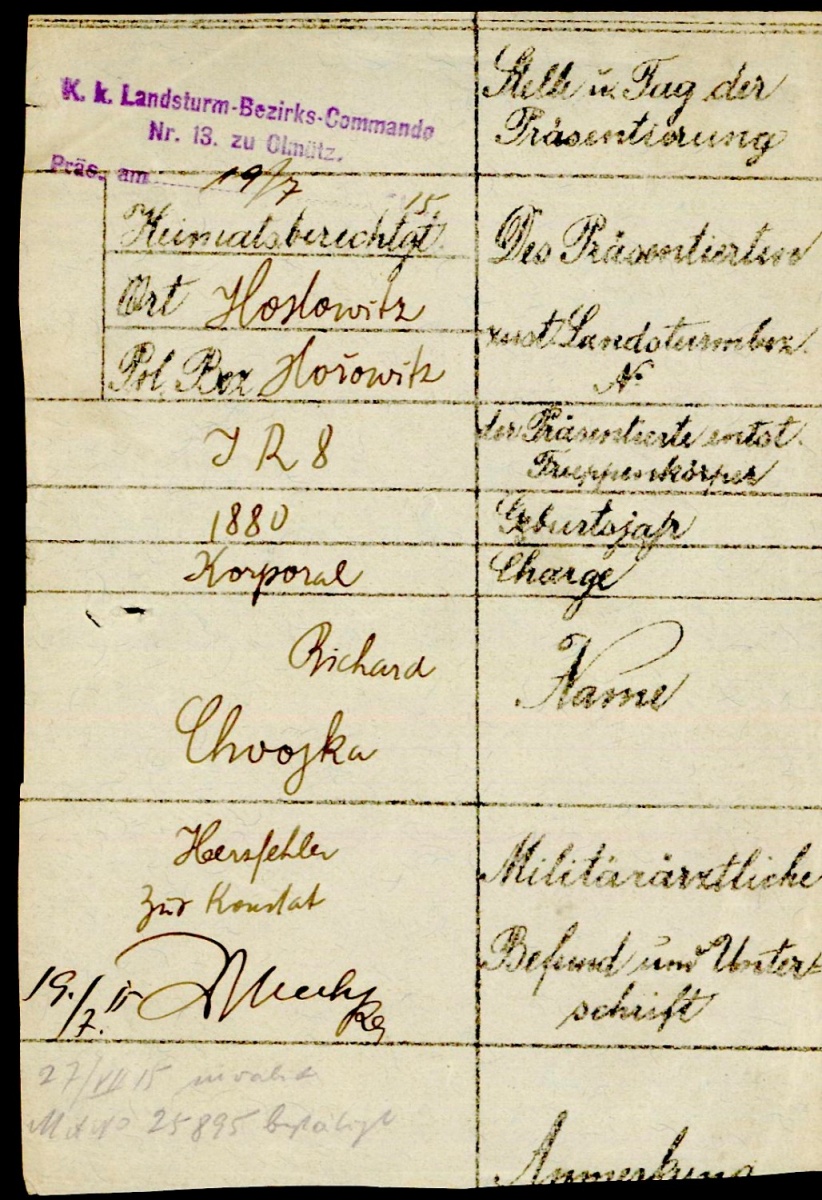 K. k. Landsturm-Bezirks-Commando
Nr. 13. zu Olmütz.
Präs. am 19/7 15
Stelle u. Tag der
Präsentierung
Heimatsberechtgt
Ort Hostowitz
Pol. Bez Hořowitz
Des Präsentierten
zust. Landsturmbez.
N.
I R 8
der Präsentierte entst.
Truppenkörper
1880
Geburtsjahr
Korporal
Charge
Richard
Chvojka
Name
Herzfehler
zur Konstat
19./7. 15
Militärärztliche
Befund und Unter-
schrift
27/VII 15 invalid
25895 bestätigt
Anmerkung